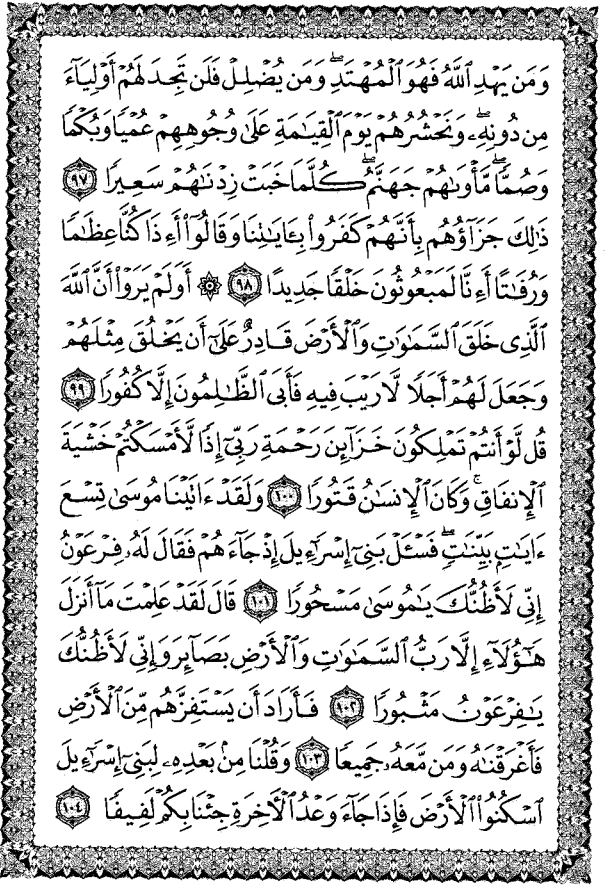 وَمَن يَهْدِ ٱللَّهُ فَهُوَ ٱلْمُهْتَدِ ۖ وَمَن يُضْلِلْ فَلَن تَجِدَ لَهُمْ أَوْلِيَآءَ
مِن دُونِهِۦ ۖ وَنَحْشُرُهُمْ يَوْمَ ٱلْقِيَٰمَةِ عَلَىٰ وُجُوهِهِمْ عُمْيًا وَبُكْمًا
وَصُمًّا ۖ مَّأْوَىٰهُمْ جَهَنَّمُ ۖ كُلَّمَا خَبَتْ زِدْنَٰهُمْ سَعِيرًا ٩٧
ذَٰلِكَ جَزَآؤُهُم بِأَنَّهُمْ كَفَرُوا۟ بِـَٔايَٰتِنَا وَقَالُوٓا۟ أَءِذَا كُنَّا عِظَٰمًا
وَرُفَٰتًا أَءِنَّا لَمَبْعُوثُونَ خَلْقًا جَدِيدًا ٩٨ ۞ أَوَلَمْ يَرَوْا۟ أَنَّ ٱللَّهَ
ٱلَّذِى خَلَقَ ٱلسَّمَٰوَٰتِ وَٱلْأَرْضَ قَادِرٌ عَلَىٰٓ أَن يَخْلُقَ مِثْلَهُمْ
وَجَعَلَ لَهُمْ أَجَلًا لَّا رَيْبَ فِيهِ فَأَبَى ٱلظَّٰلِمُونَ إِلَّا كُفُورًا ٩٩
قُل لَّوْ أَنتُمْ تَمْلِكُونَ خَزَآئِنَ رَحْمَةِ رَبِّىٓ إِذًا لَّأَمْسَكْتُمْ خَشْيَةَ
ٱلْإِنفَاقِ ۚ وَكَانَ ٱلْإِنسَٰنُ قَتُورًا ١٠٠ وَلَقَدْ ءَاتَيْنَا مُوسَىٰ تِسْعَ
ءَايَٰتٍۭ بَيِّنَٰتٍ ۖ فَسْـَٔلْ بَنِىٓ إِسْرَٰٓءِيلَ إِذْ جَآءَهُمْ فَقَالَ لَهُۥ فِرْعَوْنُ
إِنِّى لَأَظُنُّكَ يَٰمُوسَىٰ مَسْحُورًا ١٠١ قَالَ لَقَدْ عَلِمْتَ مَآ أَنزَلَ
هَٰٓؤُلَآءِ إِلَّا رَبُّ ٱلسَّمَٰوَٰتِ وَٱلْأَرْضِ بَصَآئِرَ وَإِنِّى لَأَظُنُّكَ
يَٰفِرْعَوْنُ مَثْبُورًا ١٠٢ فَأَرَادَ أَن يَسْتَفِزَّهُم مِّنَ ٱلْأَرْضِ
فَأَغْرَقْنَٰهُ وَمَن مَّعَهُۥ جَمِيعًا ١٠٣ وَقُلْنَا مِنۢ بَعْدِهِۦ لِبَنِىٓ إِسْرَٰٓءِيلَ
ٱسْكُنُوا۟ ٱلْأَرْضَ فَإِذَا جَآءَ وَعْدُ ٱلْءَاخِرَةِ جِئْنَا بِكُمْ لَفِيفًا ١٠٤